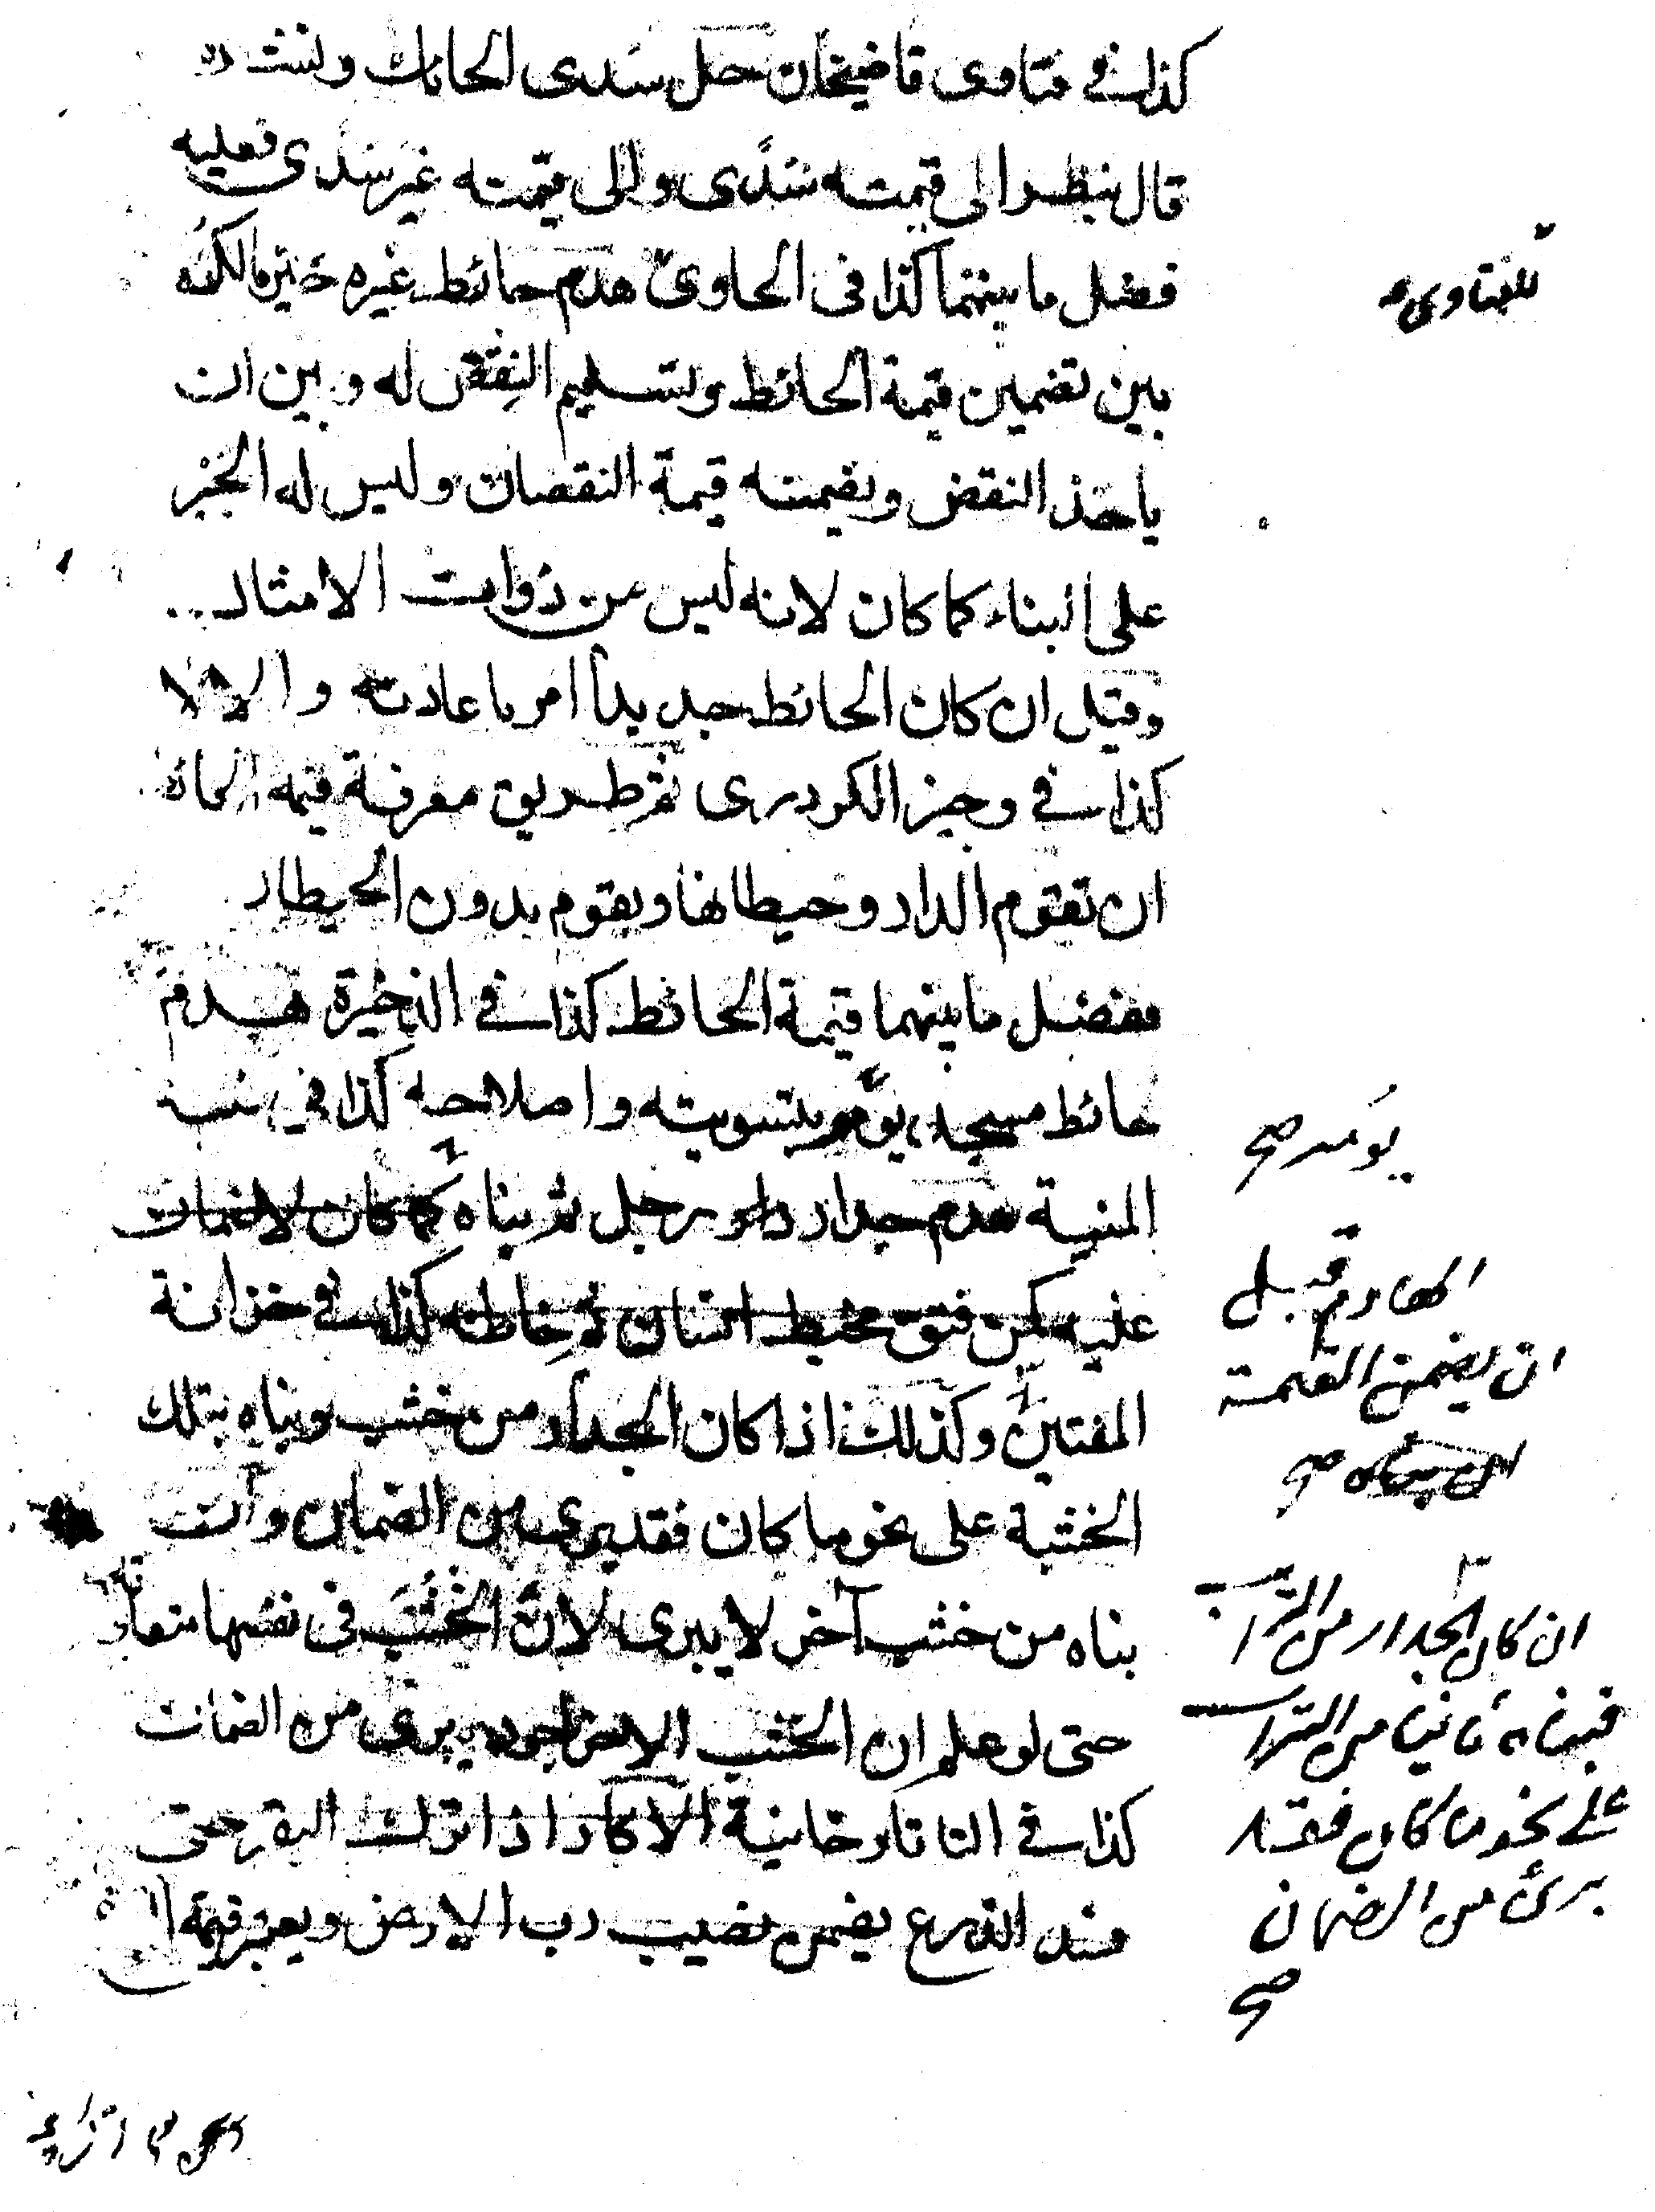 كذا في فتاوى قاضيخان حل سدى الحائك ونشره
قال ينظر الى قيمته سدى والى قيمته غير سدى فعليه
فضل ما بينهما كذا في الحاوى هدم حائط غيره خير مالكه
بين تضمين قيمة الحائط وتسليم النقض له وبين ان
ياخذ النقض ويضمنه قيمة النقصان وليس له الجبر
على البناء كما كان لانه ليس من ذوات الامثال
وقيل ان كان الحائط جديدا امر باعادته والا لا
كذا في وجيز الكردرى ثم طريق معرفة قيمة
ان تقوم الدار وحيطانها ويقوم بدون الحيطان
ففضل ما بينهما قيمة الحائط كذا في الذخيرة هدم
حائط مسجد يؤمر بتسويته واصلاحه كذا في
المنية هدم جدار دار رجل ثم بناه كما كان لا ضمان
عليه كمن فتق مخيط انسان ثم خاطه كذا في خزانة
المفتين وكذلك اذا كان الجدار من خشب وبناه بتلك
الخشبة على نحو ما كان فقد برى من الضمان وان
بناه من خشب آخر لا يبرى لان الخشب في نفسها متفاوتة
حتى لو علم ان الخشب الاخر اجود يبرى من الضمان
كذا في التاتارخانية الاكار اذا ترك البقر حتى
فسد الزرع يضمن نصيب رب الارض ويعتبر قيمة
للفتاوى
يؤمر صح
الهادم قبل
ان يضمن القيمة
صح
ان كان الجدار من التراب
فبناه ثانيا من التراب
على نحو ما كان فقد
برئ من الضمان
صح